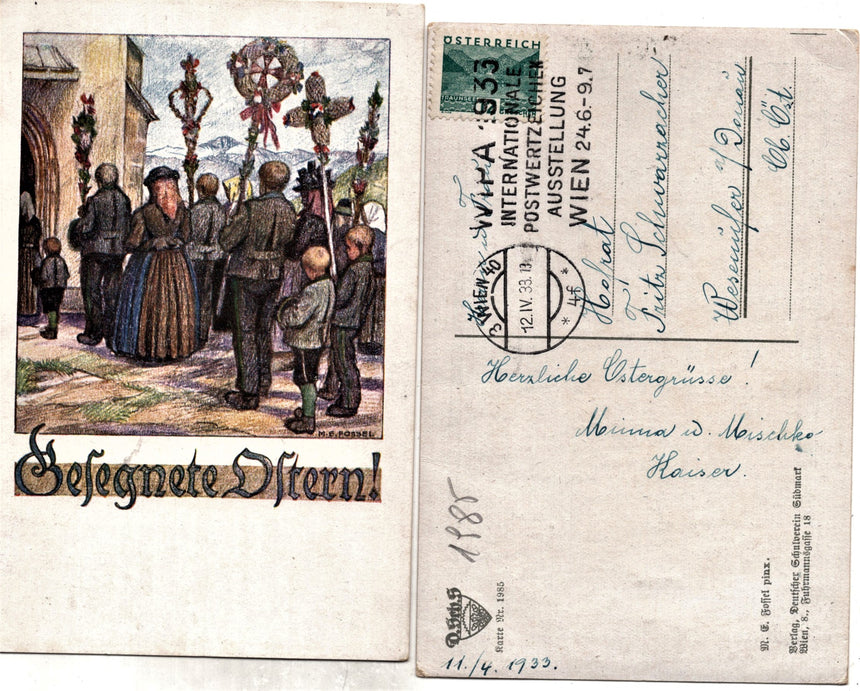 M. E. FOSSEL
Gesegnete Ostern!
ÖSTERREICH
WIPA 1933
INTERNATIONALE
POSTWERTZEICHEN
AUSSTELLUNG
WIEN 24.6.-9.7
WIEN 40
12.IV.33.13
3 * 4f *
Hofrat
Fritz Schwarzacher
Wesenufer a/Donau
Ob Öst.
Herzliche Ostergrüsse!
Minna u. Mischko
Kaiser.
1985
D.Sch.V.S
Karte Nr. 1985
11./4. 1933.
M. E. Fossel pinx.
Verlag, Deutscher Schulverein Südmark
Wien, 8., Fuhrmannsgasse 18